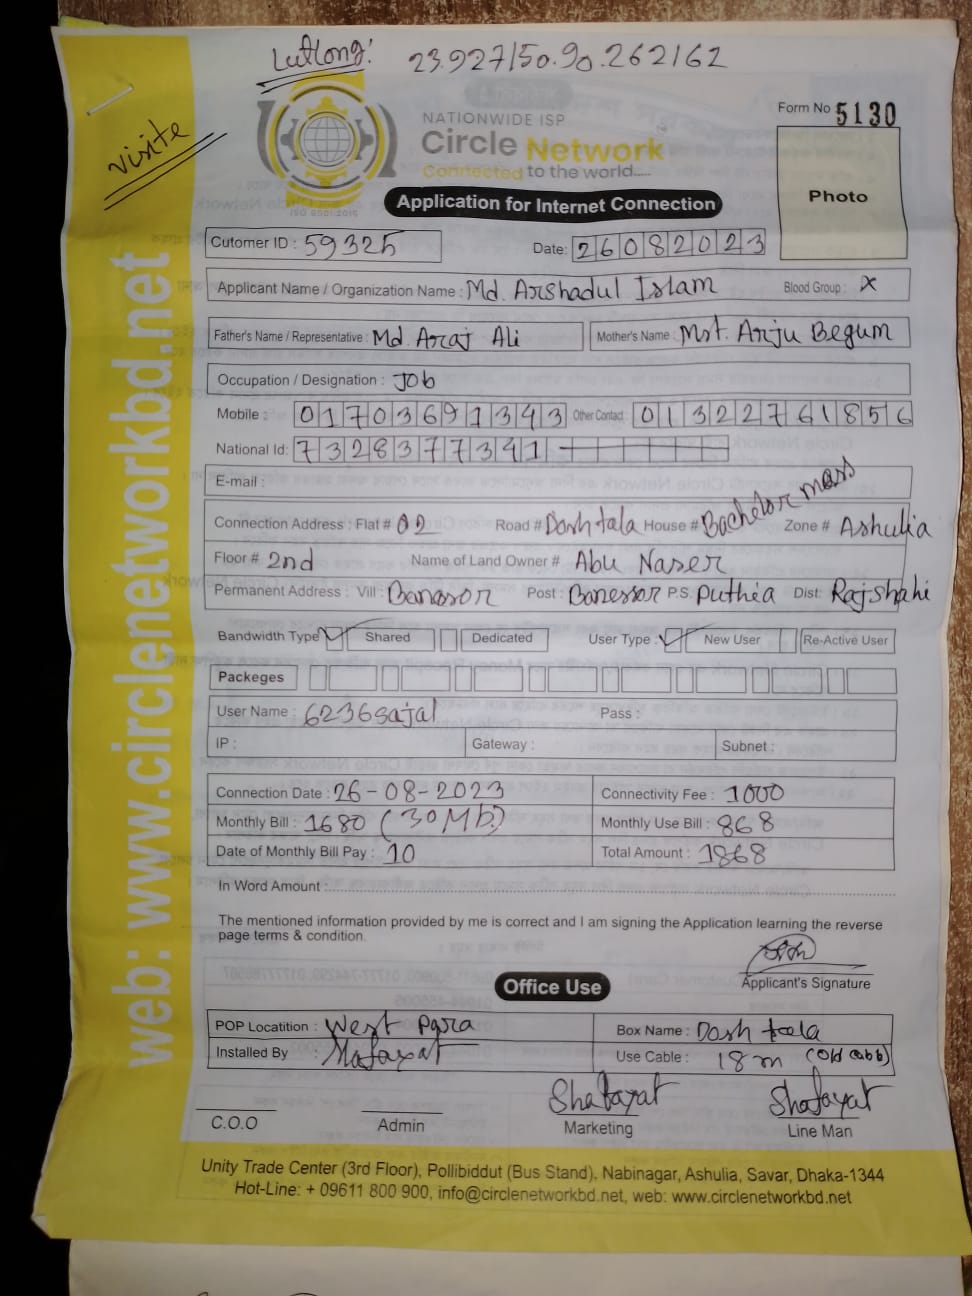 Latlong: 23.927150.90.262162
visite
Form No 5130
NATIONWIDE ISP
Circle Network
Connected to the world.....
ISO 9001:2015
Photo
Application for Internet Connection
Cutomer ID : 59325 Date: 26082023
Applicant Name / Organization Name : Md. Arshadul Islam Blood Group : X
Father's Name / Representative : Md Araj Ali Mother's Name : Mst. Anju Begum
Occupation / Designation : Job
Mobile : 01703691343 Other Contact : 01322761856
National Id: 7328377341
E-mail :
Connection Address : Flat # 02 Road # Dosh tala House # Bachelor mass Zone # Ashulia
Floor # 2nd Name of Land Owner # Abu Naser
Permanent Address : Vill : Banasor Post : Banessor P.S. Puthia Dist: Rajshahi
Bandwidth Type Shared Dedicated User Type : New User Re-Active User
Packeges
User Name : 6236sajal Pass :
IP : Gateway : Subnet :
Connection Date : 26-08-2023 Connectivity Fee : 1000
Monthly Bill : 1680 (30Mb) Monthly Use Bill : 868
Date of Monthly Bill Pay : 10 Total Amount : 1868
In Word Amount :
The mentioned information provided by me is correct and I am signing the Application learning the reverse
page terms & condition.
Applicant's Signature
Office Use
POP Locatition : West Para Box Name : Dosh tala
Installed By : Use Cable : 18m (old cable)
Shafayat Shafayat
C.O.O Admin Marketing Line Man
Unity Trade Center (3rd Floor), Pollibiddut (Bus Stand), Nabinagar, Ashulia, Savar, Dhaka-1344
Hot-Line: + 09611 800 900, info@circlenetworkbd.net, web: www.circlenetworkbd.net
web: www.circlenetworkbd.net